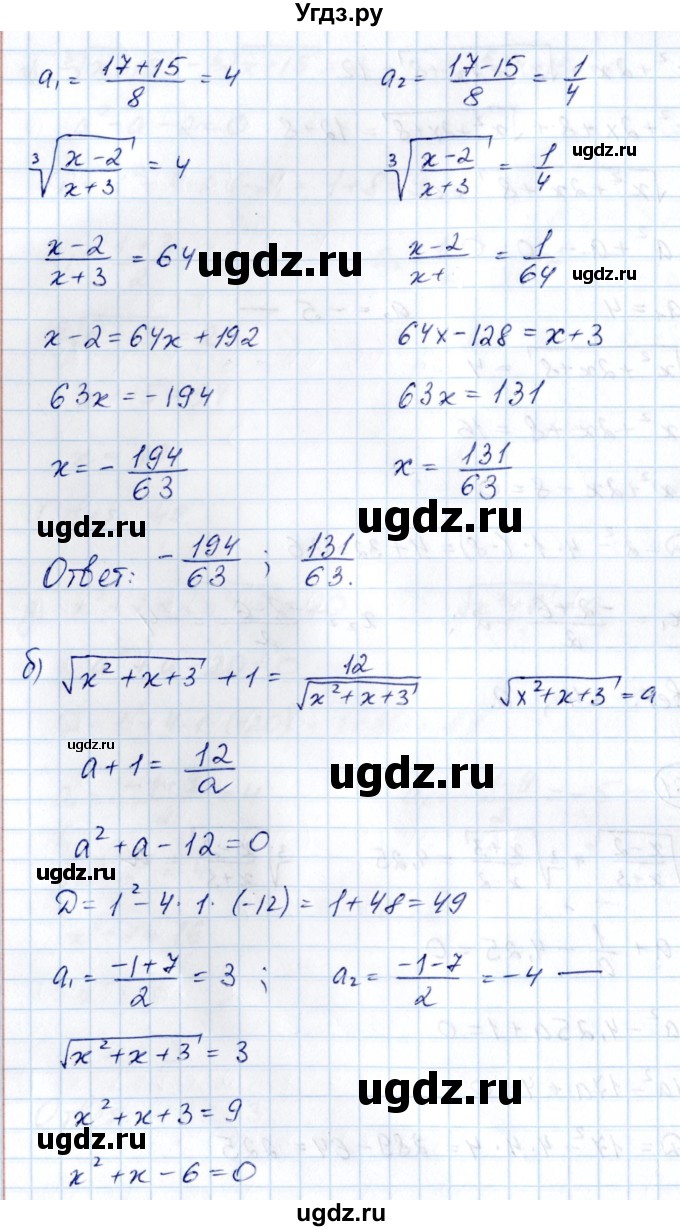 Угдз.ру
a₁ = (17+15)/8 = 4    a₂ = (17-15)/8 = 1/4
ugdz.ru
∛((x-2)/(x+3)) = 4    ∛((x-2)/(x+3)) = 1/4
ugdz.ru
(x-2)/(x+3) = 64    (x-2)/(x+ = 1/64
ugdz.ru ugdz.ru
x-2=64x+192    64x-128=x+3
63x=-194    63x=131
x=-194/63    x=131/63
ugdz.ru ugdz.ru
Ответ: -194/63; 131/63.
б) √(x²+x+3) + 1 = 12/√(x²+x+3)    √(x²+x+3) = a
ugdz.ru
a+1 = 12/a
ugdz.ru
a²+a-12=0
ugdz.ru
Д=1²-4·1·(-12)=1+48=49
a₁ = (-1+7)/2 = 3;    a₂ = (-1-7)/2 = -4 —
√(x²+x+3) = 3
ugdz.ru
x²+x+3=9
ugdz.ru
x²+x-6=0
ugdz.ru